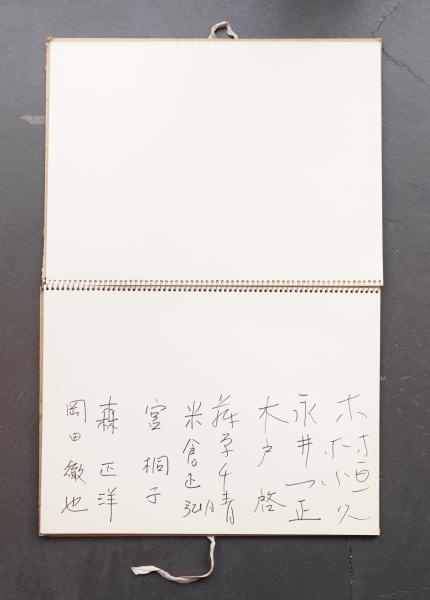 木村恒久
永井一正
木戸 啓
米倉正弘
宮 桐子
森 正洋
岡田徹也